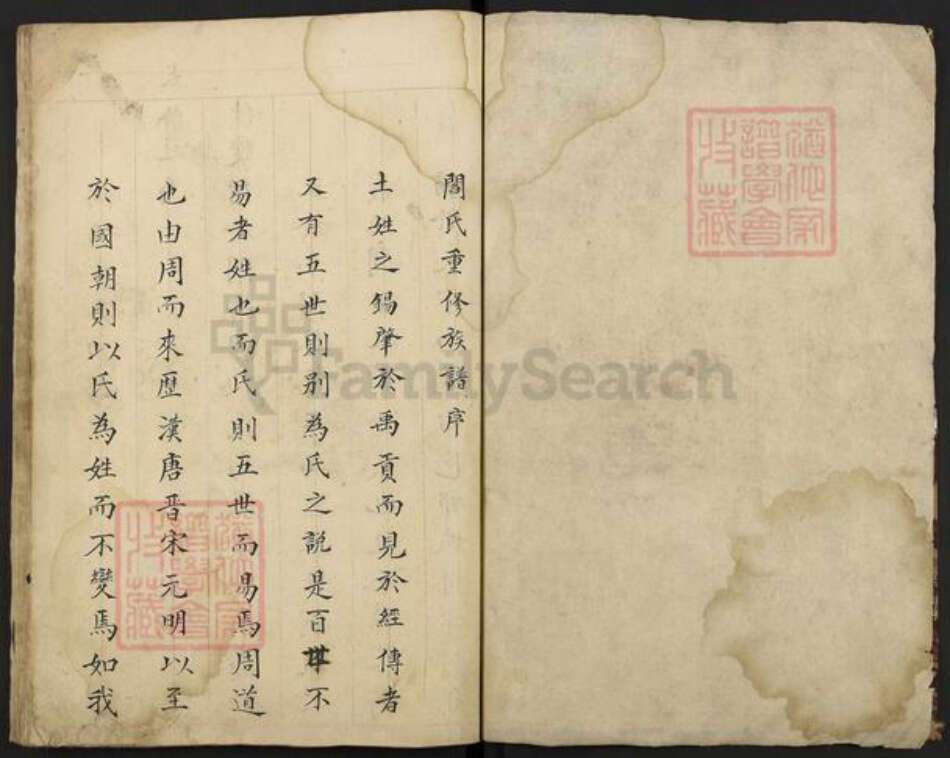 閻氏重修族譜序
土姓之錫肇於禹貢而見於經傳者
又有五世則別為氏之說是百世不
易者姓也而氏則五世而易焉周道
也由周而來歷漢唐晋宋元明以至
於國朝則以氏為姓而不變焉如我
譜學會
收藏
FamilySearch